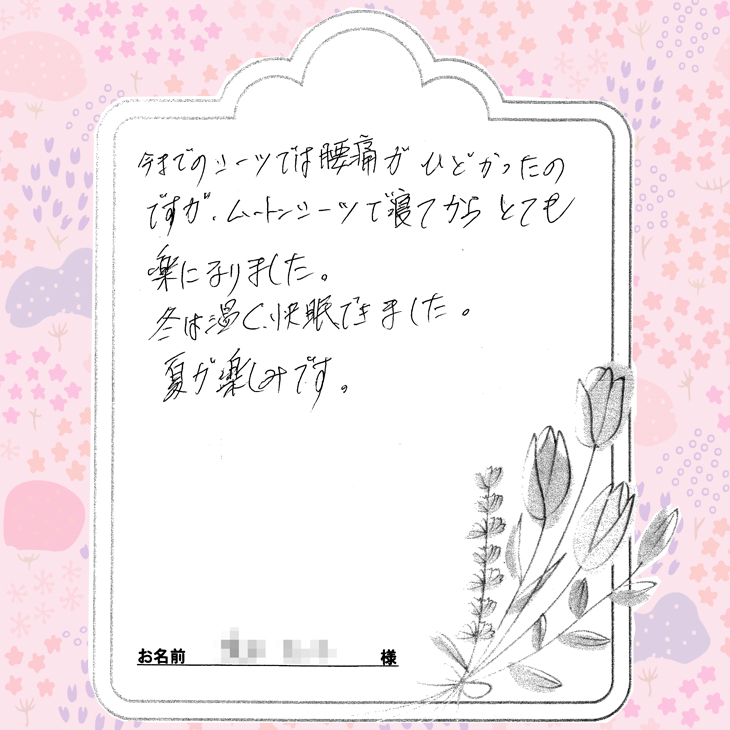 今までのシーツでは腰痛がひどかったの
ですが、ムートンシーツで寝てからとても
楽になりました。
冬は温く、快眠できました。
夏が楽しみです。
お名前 様